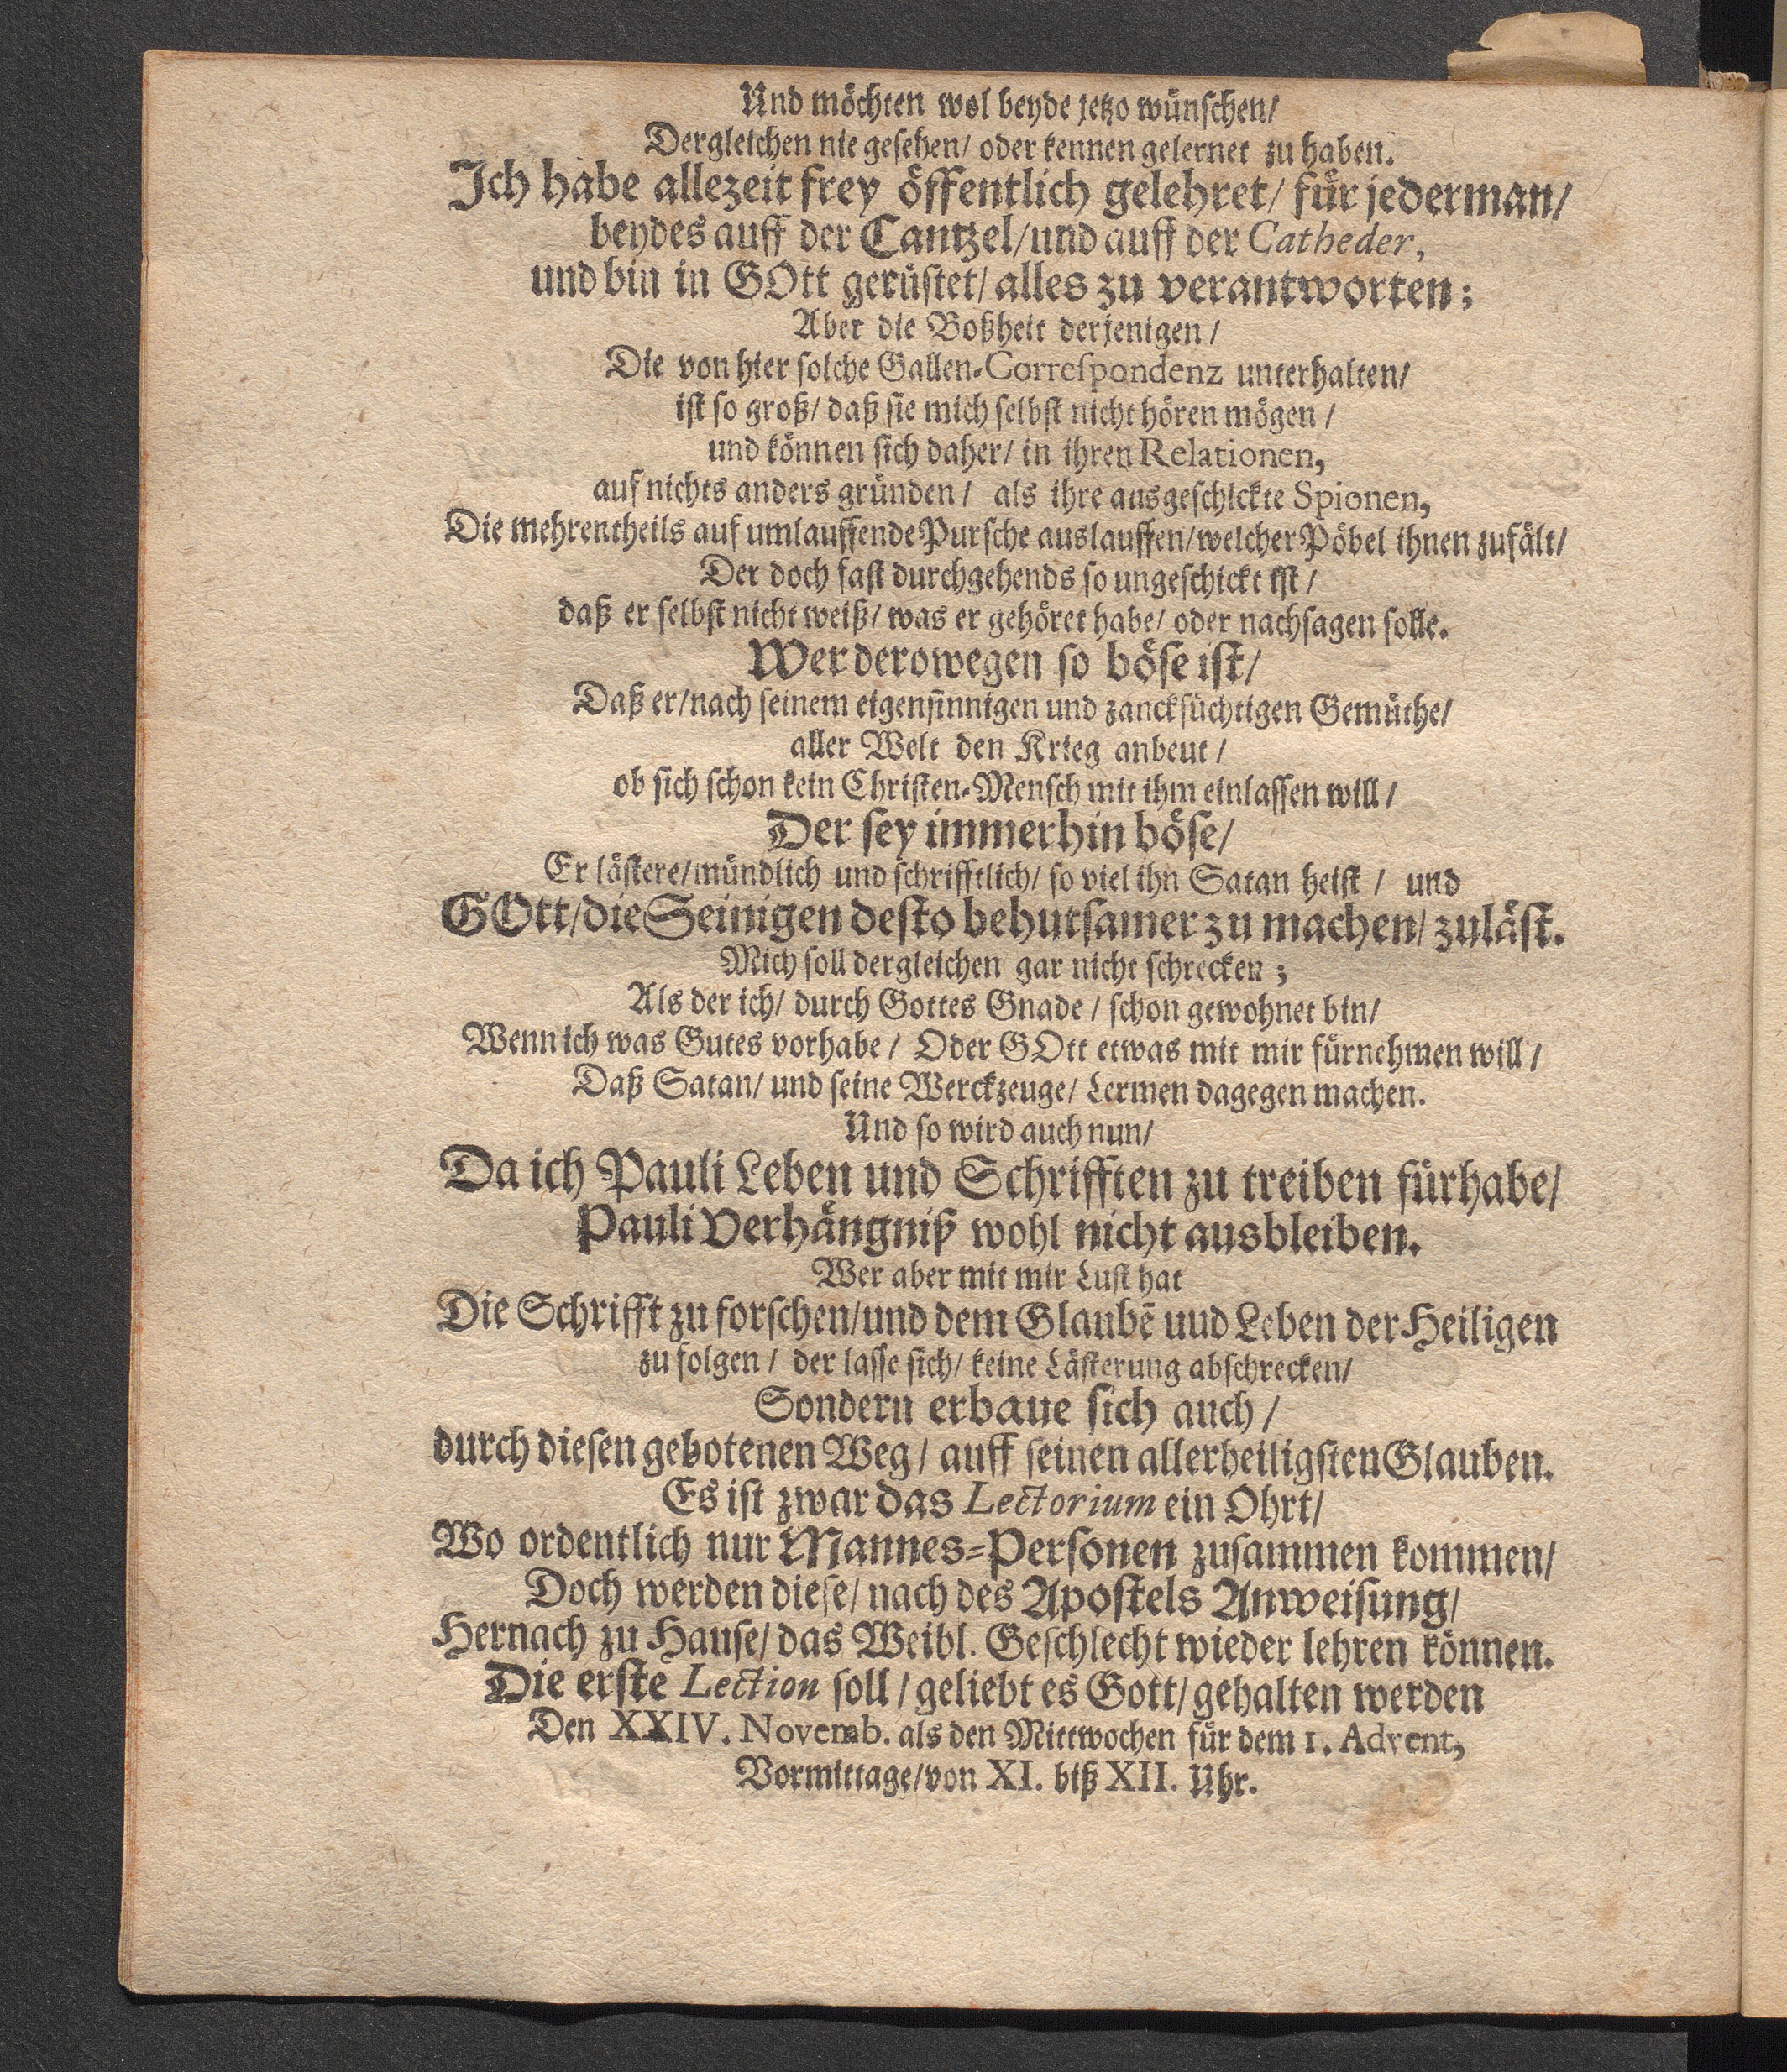 Und möchten wol beyde jetzo wünschen/
Dergleichen nie gesehen/ oder kennen gelernet zu haben.
Ich habe allezeit frey öffentlich gelehret/ für jederman/
beydes auff der Cantzel/ und auff der Catheder,
und bin in GOtt gerüstet/ alles zu verantworten;
Aber die Boßheit derjenigen/
Die von hier solche Gallen-Correspondenz unterhalten/
ist so groß/ daß sie mich selbst nicht hören mögen/
und können sich daher/ in ihren Relationen,
auf nichts anders gründen/ als ihre ausgeschickte Spionen,
Die mehrentheils auf umlauffende Pursche auslauffen/ welcher Pöbel ihnen zufält/
Der doch fast durchgehends so ungeschickt ist/
daß er selbst nicht weiß/ was er gehöret habe/ oder nachsagen solle.
Wer derowegen so böse ist/
Daß er/ nach seinem eigensinnigen und zancksüchtigen Gemüthe/
aller Welt den Krieg anbeut/
ob sich schon kein Christen-Mensch mit ihm einlassen will/
Der sey immerhin böse/
Er lästere/ mündlich und schrifftlich/ so viel ihn Satan heist/ und
GOtt/ die Seinigen desto behutsamer zu machen/ zuläst.
Mich soll dergleichen gar nicht schrecken;
Als der ich/ durch Gottes Gnade/ schon gewohnet bin/
Wenn ich was Gutes vorhabe/ Oder GOtt etwas mit mir fürnehmen will/
Daß Satan/ und seine Werckzeuge/ Lermen dagegen machen.
Und so wird auch nun/
Da ich Pauli Leben und Schrifften zu treiben fürhabe/
Pauli Verhängniß wohl nicht ausbleiben.
Wer aber mit mir Lust hat
Die Schrifft zu forschen/ und dem Glaubẽ uud Leben der Heiligen
zu folgen/ der lasse sich/ keine Lästerung abschrecken/
Sondern erbaue sich auch/
durch diesen gebotenen Weg/ auff seinen allerheiligsten Glauben.
Es ist zwar das Lectorium ein Ohrt/
Wo ordentlich nur Mannes-Personen zusammen kommen/
Doch werden diese/ nach des Apostels Anweisung/
Hernach zu Hause/ das Weibl. Geschlecht wieder lehren können.
Die erste Lection soll/ geliebt es Gott/ gehalten werden
Den XXIV. Novemb. als den Mittwochen für dem 1. Advent,
Vormittage/ von XI. biß XII. Uhr.